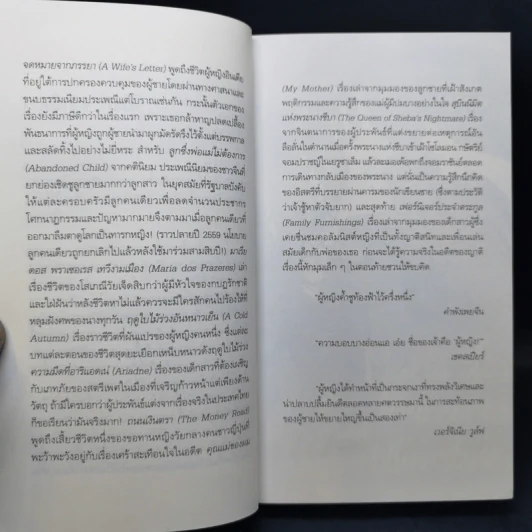 จดหมายจากภรรยา (A Wife's Letter) พูดถึงชีวิตผู้หญิงอินเดีย
ที่อยู่ใต้การปกครองควบคุมของผู้ชายโดยผ่านทางศาสนาและ
ขนบธรรมเนียมประเพณีแต่โบราณเช่นกัน กระนั้นตัวเอกของ
เรื่องยังมีภาษีดีกว่าในเรื่องแรก เพราะเธอกล้าหาญปลดเปลื้อง
พันธนาการที่ผู้หญิงถูกผู้ชายนำมาผูกมัดรัดรึงไว้ตั้งแต่บรรพกาล
และสลัดทิ้งไปอย่างไม่ยี่หระ สำหรับ ลูกซึ่งพ่อแม่ไม่ต้องการ
(Abandoned Child) จากคตินิยม ประเพณีนิยมของชาวจีนที่
ยกย่องเชิดชูลูกชายมากกว่าลูกสาว ในยุคสมัยที่รัฐบาลบังคับ
ให้แต่ละครอบครัวมีลูกคนเดียวเพื่อลดจำนวนประชากร
โศกนาฏกรรมและปัญหามากมายจึงตามมาเมื่อลูกคนเดียวที่
ออกมาลืมตาดูโลกเป็นทารกหญิง! (ราวปลายปี 2559 นโยบาย
ลูกคนเดียวถูกยกเลิกไปแล้วหลังใช้มาร่วมสามสิบปี!) มาเรีย
ดอส พราเซเรส เทวีงามเมือง (Maria dos Prazeres) เล่าถึง
เรื่องชีวิตของโสเภณีวัยเจ็ดสิบกว่าผู้มีหัวใจของกบฏรักชาติ
และใฝ่ฝันว่าหลังชีวิตหาไม่แล้วควรจะมีใครสักคนไปร้องไห้ที่
หลุมฝังศพของนางทุกวัน ฤดูใบไม้ร่วงอันหนาวเย็น (A Cold
Autumn) เรื่องราวชีวิตที่ผันแปรของผู้หญิงคนหนึ่ง ซึ่งแต่ละ
บทแต่ละตอนของชีวิตสุดยะเยือกเหน็บหนาวดังฤดูใบไม้ร่วง
ความมืดที่อารีแอดเน่ (Ariadne) เรื่องของเด็กสาวที่ต้องเผชิญ
กับเภทภัยของสตรีเพศในเมืองที่เจริญก้าวหน้าแต่เพียงด้าน
วัตถุ ถ้ามีใครบอกว่าผู้ประพันธ์แต่งจากเรื่องจริงในประเทศไทย
ก็ขอเรียนว่ามันจริงมาก! ถนนเงินตรา (The Money Road)
พูดถึงเสี้ยวชีวิตหนึ่งของขอทานหญิงวัยกลางคนชาวญี่ปุ่นที่
พะว้าพะวังอยู่กับเรื่องเศร้าสะเทือนใจในอดีต คุณแม่ของผม
(My Mother) เรื่องเล่าจากมุมมองของลูกชายที่เฝ้าสังเกต
พฤติกรรมและความรู้สึกของแม่ผู้มีปมบางอย่างในใจ สุบินนิมิต
แห่งพระนางชีบา (The Queen of Sheba's Nightmare) เรื่อง
จากจินตนาการของผู้ประพันธ์ที่แต่งขยายต่อเหตุการณ์อัน
ลือลั่นในตำนานเมื่อครั้งพระนางแห่งชีบาเข้าเฝ้าโซโลมอน กษัตริย์
จอมปราชญ์ในยรูซาเล็ม แล้วตะเมอเพ้อพกถึงจอมราชันย์ตลอด
การเดินทางกลับเมืองของพระนาง แต่นั่นเป็นความรู้สึกนึกคิด
ของอิสตรีที่บรรยายผ่านคารมของนักเขียนชาย (ซึ่งตามประวัติ
ว่าเจ้าชู้หาตัวจับยาก) และสุดท้าย เฟอร์นิเจอร์ประจำตระกูล
(Family Furnishings) เรื่องเล่าจากมุมมองของเด็กสาวผู้ซึ่ง
เคยชื่นชมคอลัมนิสต์หญิงที่เป็นทั้งญาติสนิทและเพื่อนเล่น
สมัยเด็กกับพ่อของเธอ ก่อนจะได้รู้ความจริงในอดีตของญาติ
เรื่องนี้หักมุมเล็ก ๆ ในตอนท้ายชวนให้ขบคิด
"ผู้หญิงค้ำชูท้องฟ้าไว้ครึ่งหนึ่ง"
คำพังเพยจีน
"ความบอบบางอ่อนแอ เอ๋ย ชื่อของเจ้าคือ 'ผู้หญิง!'"
เชคสเปียร์
"ผู้หญิงได้ทำหน้าที่เป็นกระจกเงาที่ทรงพลังวิเศษและ
น่าปลาบปลื้มยินดีตลอดหลายศตวรรษมานี้ ในการสะท้อนภาพ
ของผู้ชายให้ขยายใหญ่ขึ้นเป็นสองเท่า"
เวอร์จิเนีย วูล์ฟ